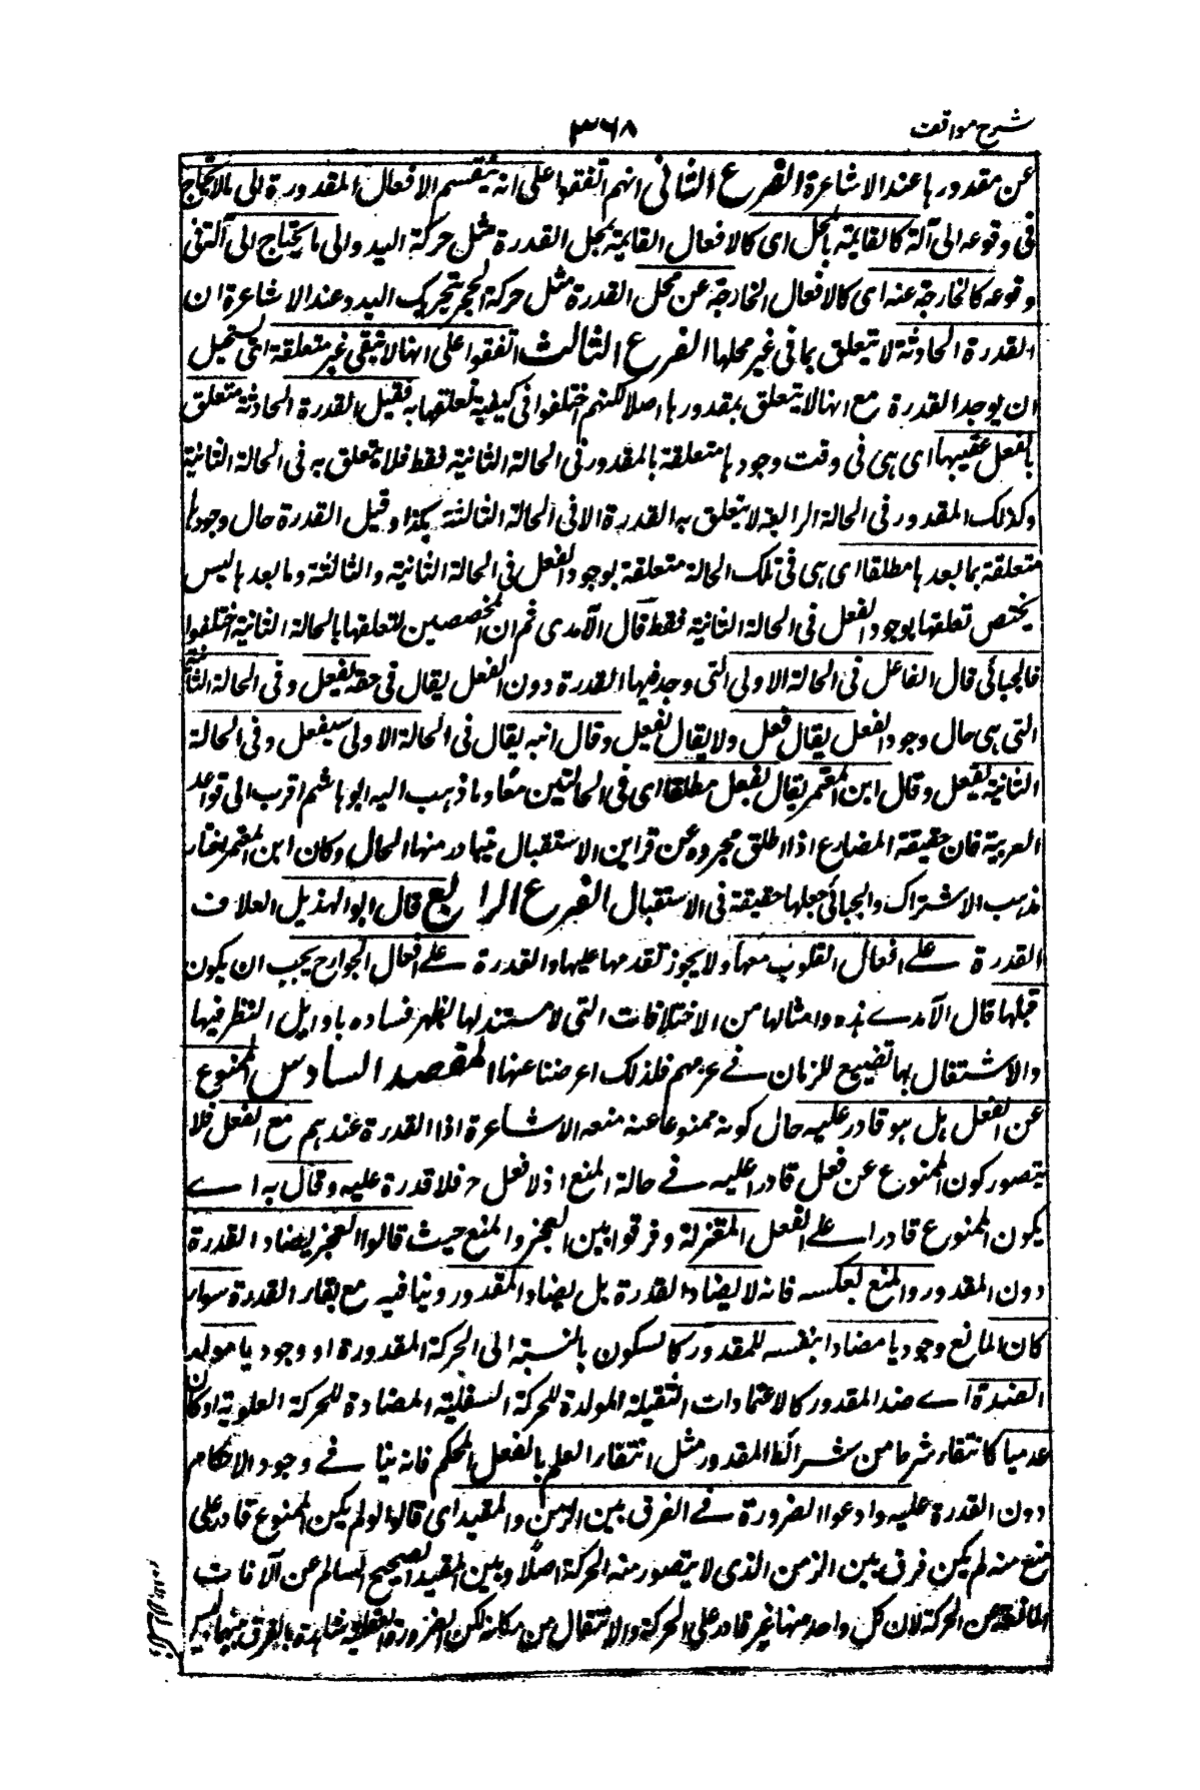 شرح مواقف
۳۶۸
عن مقدورها عند الاشاعرة الفرع الثانى انهم اتفقوا على انه ينقسم الافعال المقدورة الى مالا يحتاج
فى وقوعه الى آلة كالقائمة بالمحل اى كالافعال القائمة بمحل القدرة مثل حركة اليد والى ما يحتاج الى آلة فى
وقوعه كالخارجة عنه اى كالافعال الخارجة عن محل القدرة مثل حركة الحجر بتحريك اليد وعند الاشاعرة ان
القدرة الحادثة لا يتعلق بما فى غير محلها الفرع الثالث اتفقوا على انها لا تبقى غير متعلقة اى يستحيل
ان يوجد القدرة مع انها لا يتعلق بمقدورها اصلا لكنهم اختلفوا فى كيفية تعلقها به فقيل القدرة الحادثة متعلق
بالفعل عقيبها اى هى فى وقت وجودها متعلقة بالمقدور فى الحالة الثانية فقط فلا يتعلق به فى الحالة الثانية
وكذلك المقدور فى الحالة الرابعة لا يتعلق به القدرة الا فى الحالة الثالثة هكذا وقيل القدرة حال وجودها
متعلقة بما بعدها مطلقا اى هى فى تلك الحالة متعلقة بوجود الفعل فى الحالة الثانية والثالثة وما بعدها ليس
يختص تعلقها بوجود الفعل فى الحالة الثانية فقط قال الآمدى ثم ان المخصصين لتعلقها بالحالة الثانية اختلفوا
فالجبائى قال الفاعل فى الحالة الاولى التى وجد فيها القدرة دون الفعل يقال فى حقه يفعل وفى الحالة الثانية
التى هى حال وجود الفعل يقال فعل ولا يقال يفعل وقال ابنه يقال فى الحالة الاولى سيفعل وفى الحالة
الثانية يفعل وقال ابن المعتمر يقال يفعل مطلقا اى فى الحالتين معا وما ذهب اليه ابو هاشم اقرب الى قواعد
العربية فان حقيقة المضارع اذا اطلق مجرده عن قراين الاستقبال يتبادر منها الحال وكان ابن المعتمر يختار
مذهب الاشتراك والجبائى جعلها حقيقة فى الاستقبال الفرع الرابع قال ابو الهذيل العلاف
القدرة على افعال القلوب معها ولا يجوز تقدمها عليها والقدرة على افعال الجوارح يجب ان يكون
قبلها قال الآمدے هذه وامثالها من الاختلافات التى لا مستند لها يظهر فساده باوايل النظر فيها
والاشتغال بها تضييع للزمان فے غير مهم فلذلك اعرضنا عنها المقصد السادس الممنوع
عن الفعل هل هو قادر عليه حال كونه ممنوعا عنه منعه الاشاعرة اذا القدرة عندهم مع الفعل فلا
يتصور كون الممنوع عن فعل قادرا عليه فے حالة المنع اذ لا فعل ح فلا قدرة عليه وقال به اے
بكون الممنوع قادرا على الفعل المعتزلة وفرقوا بين العجز والمنع حيث قالوا العجز يضاد القدرة
دون المقدور والمنع بعكسه فانه لا يضاد القدرة بل يضاد المقدور وينافيه مع بقاء القدرة سواء
كان المانع وجوديا مضادا بنفسه للمقدور كالسكون بالنسبة الى الحركة المقدورة او وجوديا مولد
الضده اے ضد المقدور كالاعتمادات الثقيلة المولدة للحركة السفلية المضادة للحركة العلوية او كان
عدميا كانتفاء شرط من شرائط المقدور مثل انتفاء العلم بالفعل المحكم فانه ينا فے وجود الاحكام
دون القدرة عليه وادعوا الضرورة فے الفرق بين الزمن والمقيد اى قالوا لو لم يكن الممنوع قادر على
منع منه لم يكن فرق بين الزمن الذى لا يتصور منه الحركة اصلا وبين المقيد الصحيح السالم عن الآفات
المانعة عن الحركة لان كل واحد منها غير قادر على الحركة والانتقال من مكانه لكن الضرورة العقلية شاهدة بالفرق بينهما